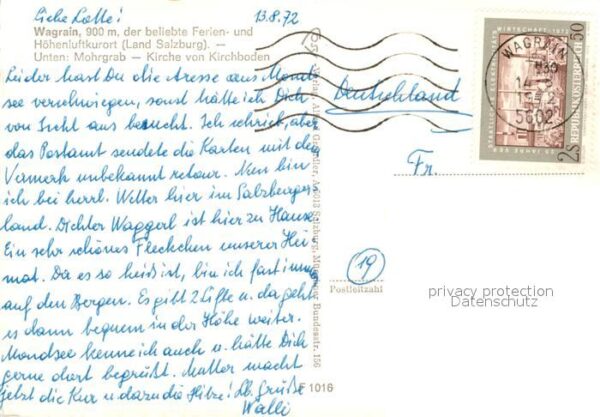 Liebe Lotte!
13.8.72
Wagrain, 900 m, der beliebte Ferien- und
Höhenluftkurort (Land Salzburg). —
Unten: Mohrgrab — Kirche von Kirchboden
Leider hast Du die Adresse aus Mond-
see verschwiegen, sonst hätte ich Dich
von Ischl aus besucht. Ich schrieb, aber
das Postamt sendete die Karten mit dem
Vermerk unbekannt retour. Nun bin
ich bei herrl. Wetter hier im Salzburger-
land. Dichter Waggerl ist hier zu Hause
Ein sehr schönes Fleckchen unserer Hei-
mat. Da es so heiß ist, bin ich fast immer
auf den Bergen. Es gibt 2 Lifte u. da geht
es dann bequem in der Höhe weiter.
Mondsee kenne ich auch u. hätte Dich
gerne dort begrüßt. Mutter macht
jetzt die Kur u. dazu die Hitze! Lb. Grüße
Walli
Salzburg, Münchner Bundesstr. 156
F 1016
Deutschland
Fr.
19
Postleitzahl
WAGRAIN
5602
REPUBLIK ÖSTERREICH
2S 50
privacy protection
Datenschutz